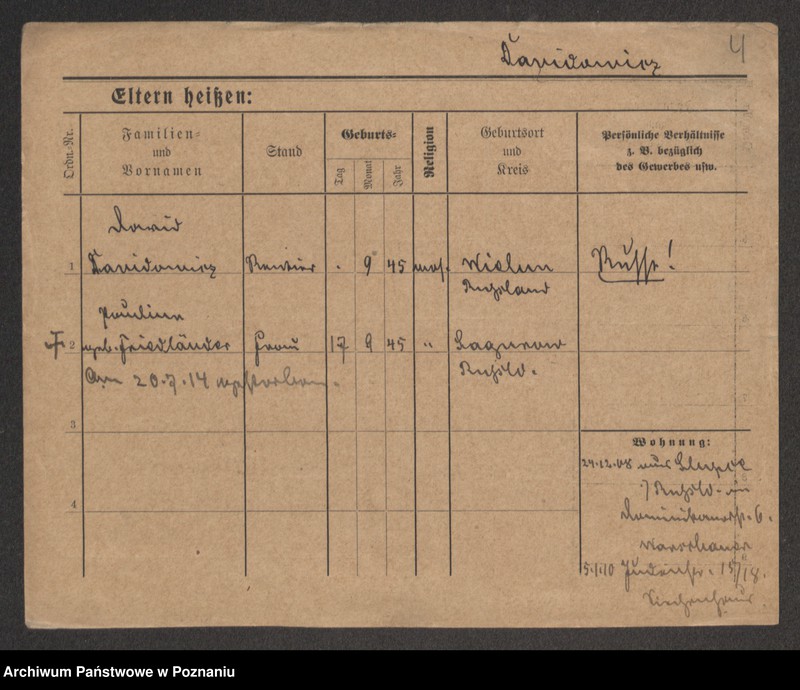 4
Davidowicz
Eltern heißen:
Ordn.-Nr.
Familien=
und
Vornamen
Stand
Geburts=
Tag
Monat
Jahr
Religion
Geburtsort
und
Kreis
Persönliche Verhältnisse
z. B. bezüglich
des Gewerbes usw.
David
1 Davidowicz Rentier . 9 45 mos. Wielun Russe!
Rußland
Pauline
2 geb. Friedländer Frau 17 9 45 " Zagurow
Am 20.7.14 verstorben. Rußld.
3
4
Wohnung:
24.12.08 aus Slupce
/ Rußld. in
Dominikanerstr. 6.
5.1.10 Judenstr. 15/18.
Siechenhaus
Archiwum Państwowe w Poznaniu